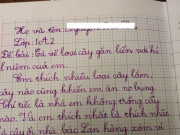 Họ và tên:
Lớp: 1A2
Đề bài: Tả về loại cây gắn liền với kỉ
niệm của em.
Em thích nhiều loại cây lắm,
cây nào cũng khiến em ăn no bụng.
Chỉ tức là nhà em không trồng cây
nào. Và em thích nhất là, thích nhất
là cây ổi nhà bác Lan hàng xóm vì